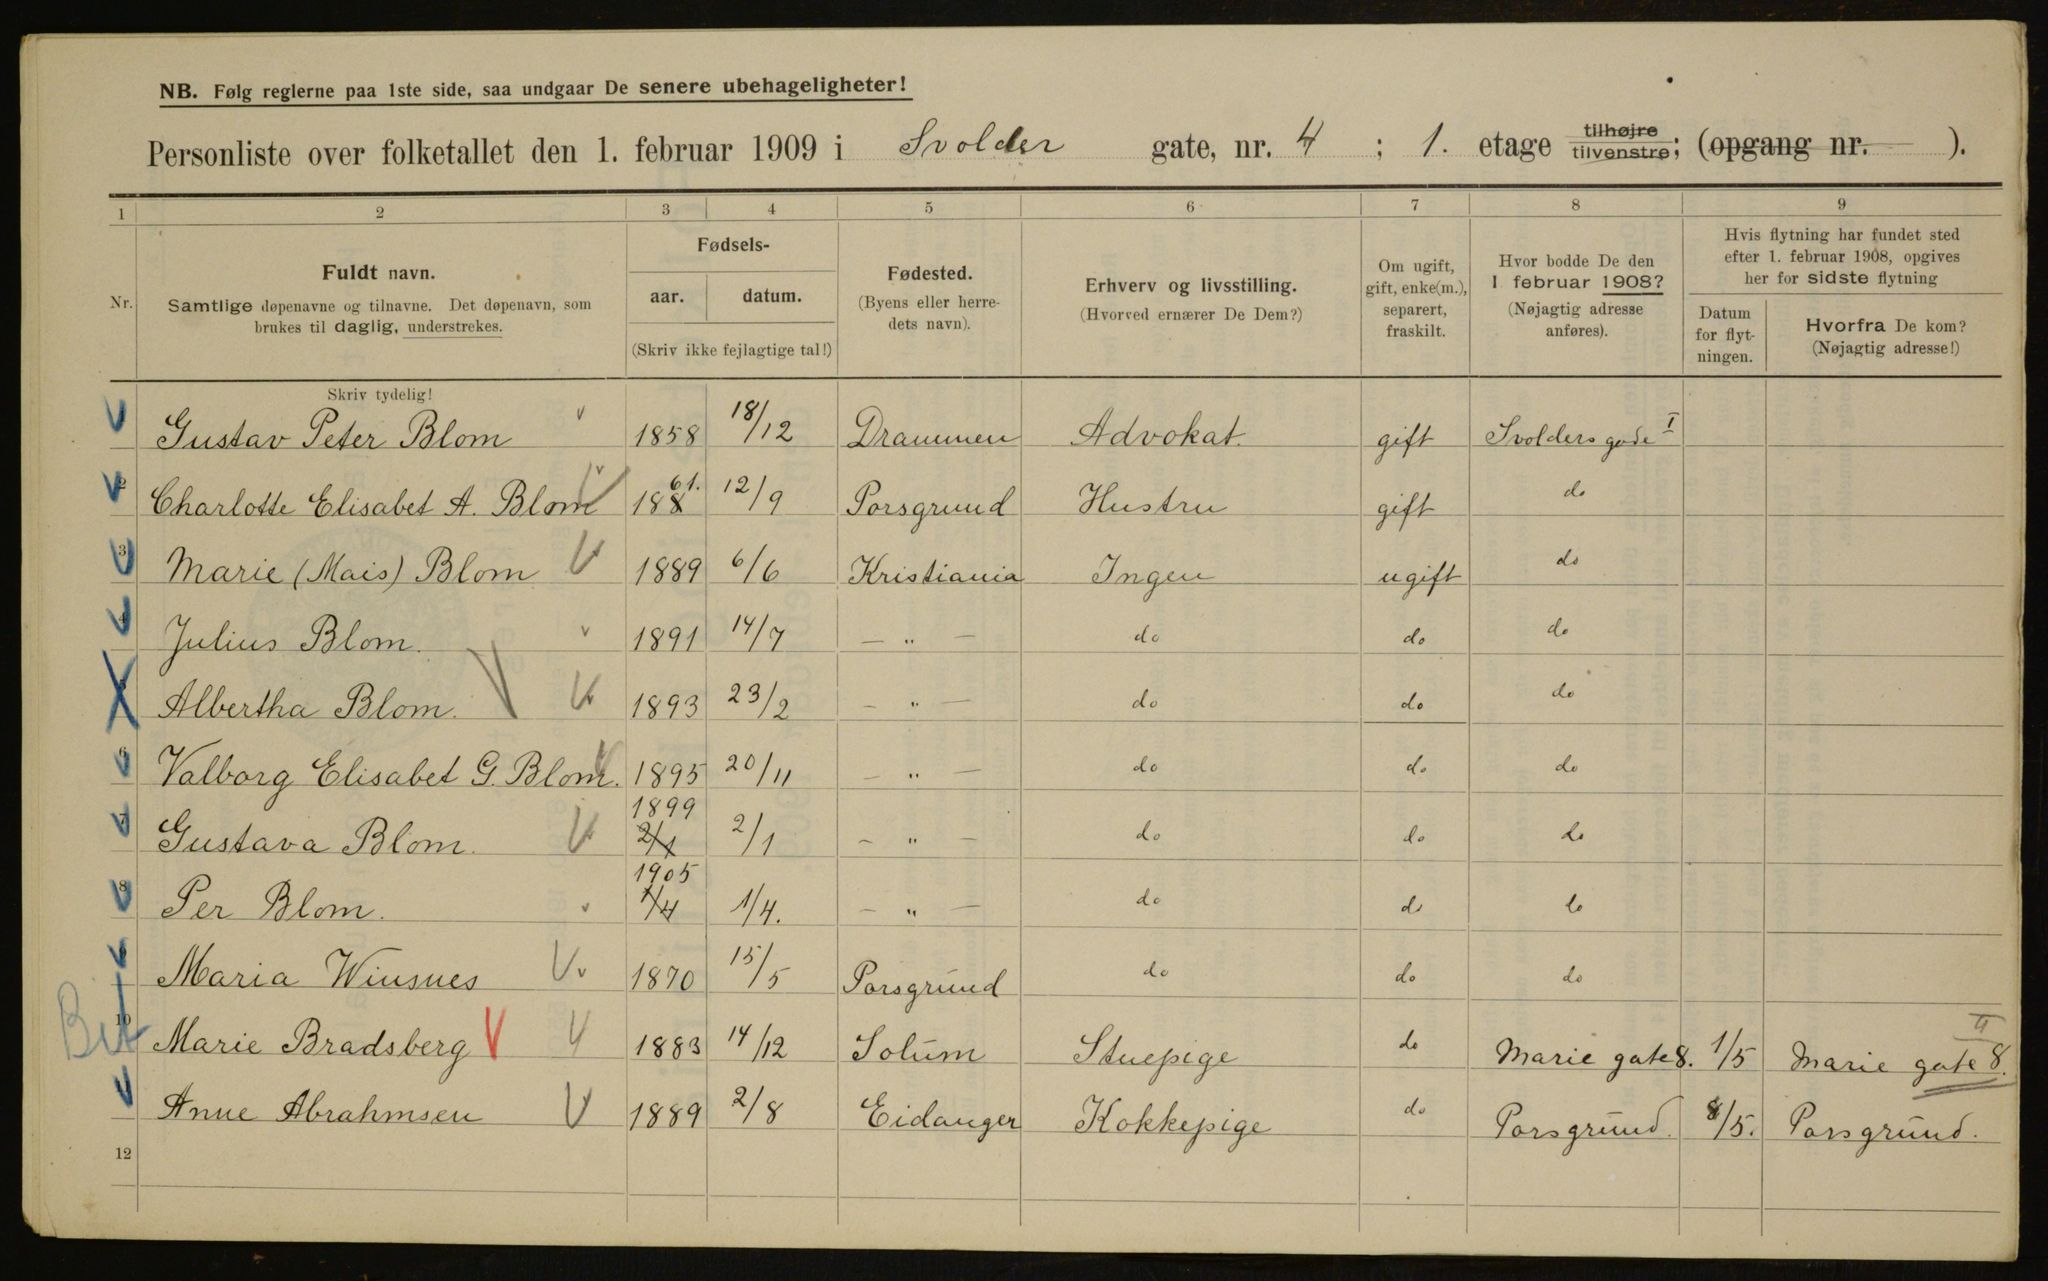 NB. Følg reglerne paa 1ste side, saa undgaar De senere ubehageligheter!
Personliste over folketallet den 1. februar 1909 i Svolder gate, nr. 4 ; 1. etage tilhøjre tilvenstre; (opgang nr. ).
1 2 3 4 5 6 7 8 9
Nr. Fuldt navn. Samtlige døpenavne og tilnavne. Det døpenavn, som brukes til daglig, understrekes.
Fødsels- aar. datum. (Skriv ikke fejlagtige tal!)
Fødested. (Byens eller herredets navn).
Erhverv og livsstilling. (Hvorved ernærer De Dem?)
Om ugift, gift, enke(m.), separert, fraskilt.
Hvor bodde De den 1 februar 1908? (Nøjagtig adresse anføres).
Hvis flytning har fundet sted efter 1. februar 1908, opgives her for sidste flytning
Datum for flytningen. Hvorfra De kom? (Nøjagtig adresse!)
Skriv tydelig!
Gustav Peter Blom 1858 18/12 Drammen Advokat. gift Svolders gade I
2 Charlotte Elisabet A. Blom 188 61. 12/9 Porsgrund Hustru gift do
3 Marie (Mais) Blom 1889 6/6 Kristiania Ingen ugift do
4 Julius Blom. 1891 14/7 — „ — do do do
5 Albertha Blom. 1893 23/2 — „ — do do do
6 Valborg Elisabet G. Blom. 1895 20/11 — „ — do do do
7 Gustava Blom. 1899 2/1 2/1 — „ — do do do
8 Per Blom. 1905 1/4 1/4. — „ — do do do
9 Maria Winsnes 1870 15/5 Porsgrund do do do
Bet 10 Marie Bradsberg 1883 14/12 Solum Stuepige do Marie gate 8. 1/5 Marie gate 8. II
Anne Abrahmsen 1889 2/8 Eidanger Kokkepige do Porsgrund. 8/5. Porsgrund.
12